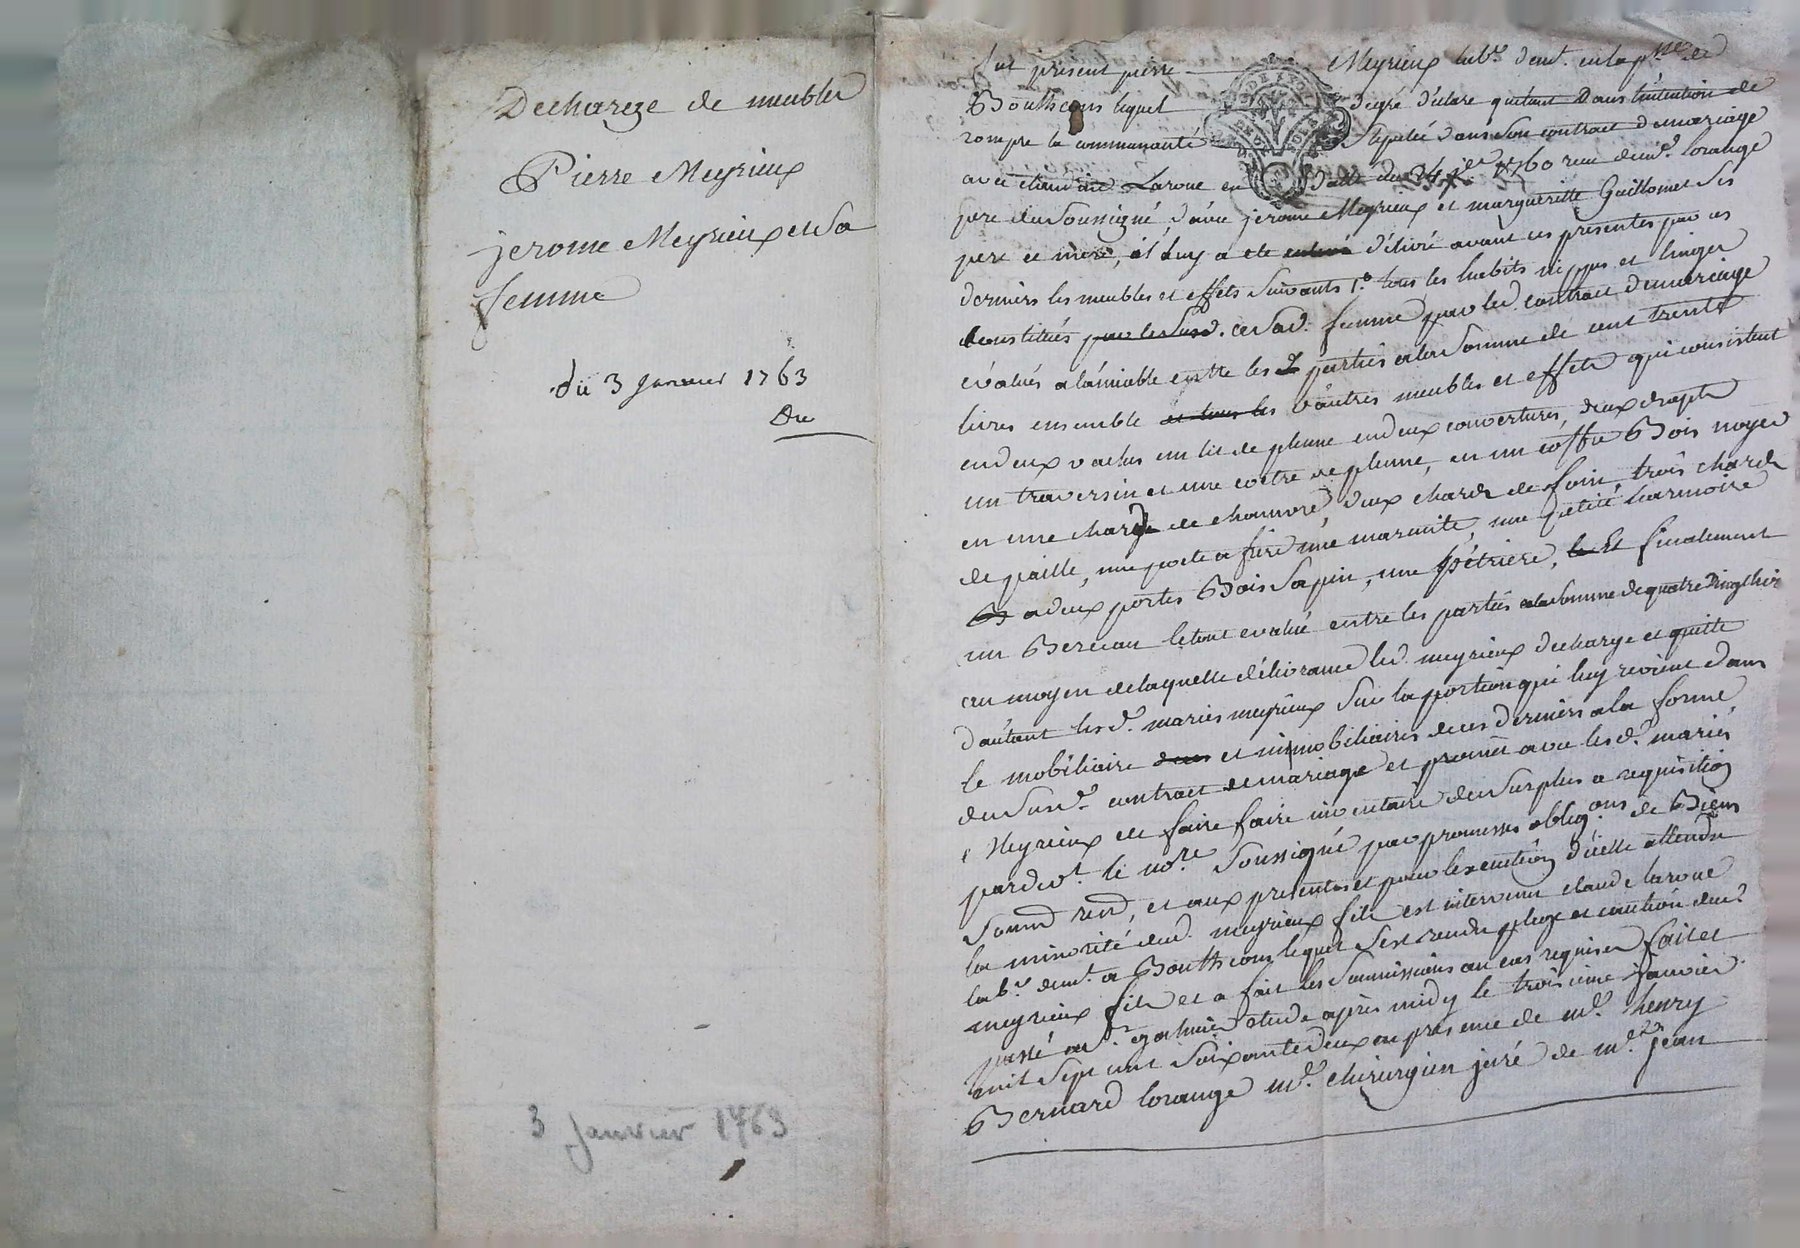 Decharge de meubles
Pierre Meyrieux
jerome Meyrieux et Sa
femme
du 3 Janvier 1763
3 Janvier 1763
fut present pierre Meyrieux lab.r dem.t en la p.sse de
Boutheons lequel degre déclare quétant Dans l'intention de
rompre la communauté Stipulée dans Son contract de mariage
avec claudine Laroue en datte du 1760 reçu de me.e Lorange
pere du Soussigné, d'avec jerome Meyrieux et margueritte Guillomet Ses
pere et mere, il luy a eté délivré avant ces presentes par ces
derniers les meubles et effets Suivants 1.o tous les habits nippes et linges
constitués par les Susd. a Sad. femme par led. contract de mariage
évalués a l'amiable entre les parties a la Somme de cent trente
livres ensemble les autres meubles et effets qui consistent
en deux vaches un lit de plume en deux couvertures, deux draps
un traversin et une coetre de plume, en un coffre Bois noyer
en une charge de chanvre, deux chards de foin trois chards
de paille, une poele a frire une marmite, une petite harmoire
a deux portes Bois Sapin, une pétriere, Et finalement
un Berceau le tout evalué entre les parties a la Somme de quatre vingt
au moyen de laquelle délivrance led. meyrieux decharge et quitte
d'autant les d. mariés meyrieux Sur la portion qui luy revient dans
le mobiliaire et immobiliaires de ces derniers a la forme
du Susd. contract de mariage et promet avec les d. mariés
Meyrieux de faire faire inventaire du Surplus a requisition
pardev.t le no.re Soussigné par promesses oblig.ons de Biens
Soumd rend, et aux presentes et pour l'execution d'icelle attendu
la minorité dud. meyrieux fils est intervenu claude laroue
lab.r dem.t a Boutheons lequel Sest rendu pleige et caution dud.
meyrieux fils et a fait les Soumissions au cas requises fait et
passé a S.t galmier etude après midy le troisieme janvier
mil Sept cent Soixante deux en présence de m.e henry
Bernard Lorange m.e chirurgien juré de m.e jean